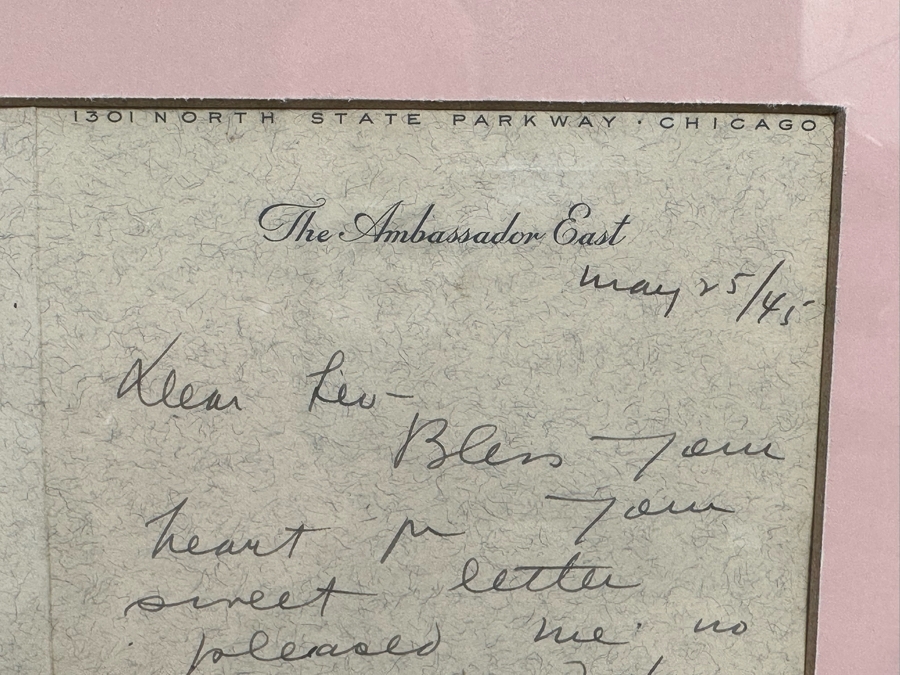 1301 NORTH STATE PARKWAY · CHICAGO
The Ambassador East
May 25/45
Dear Leo-
Bless your
heart for your
sweet letter
pleased me no